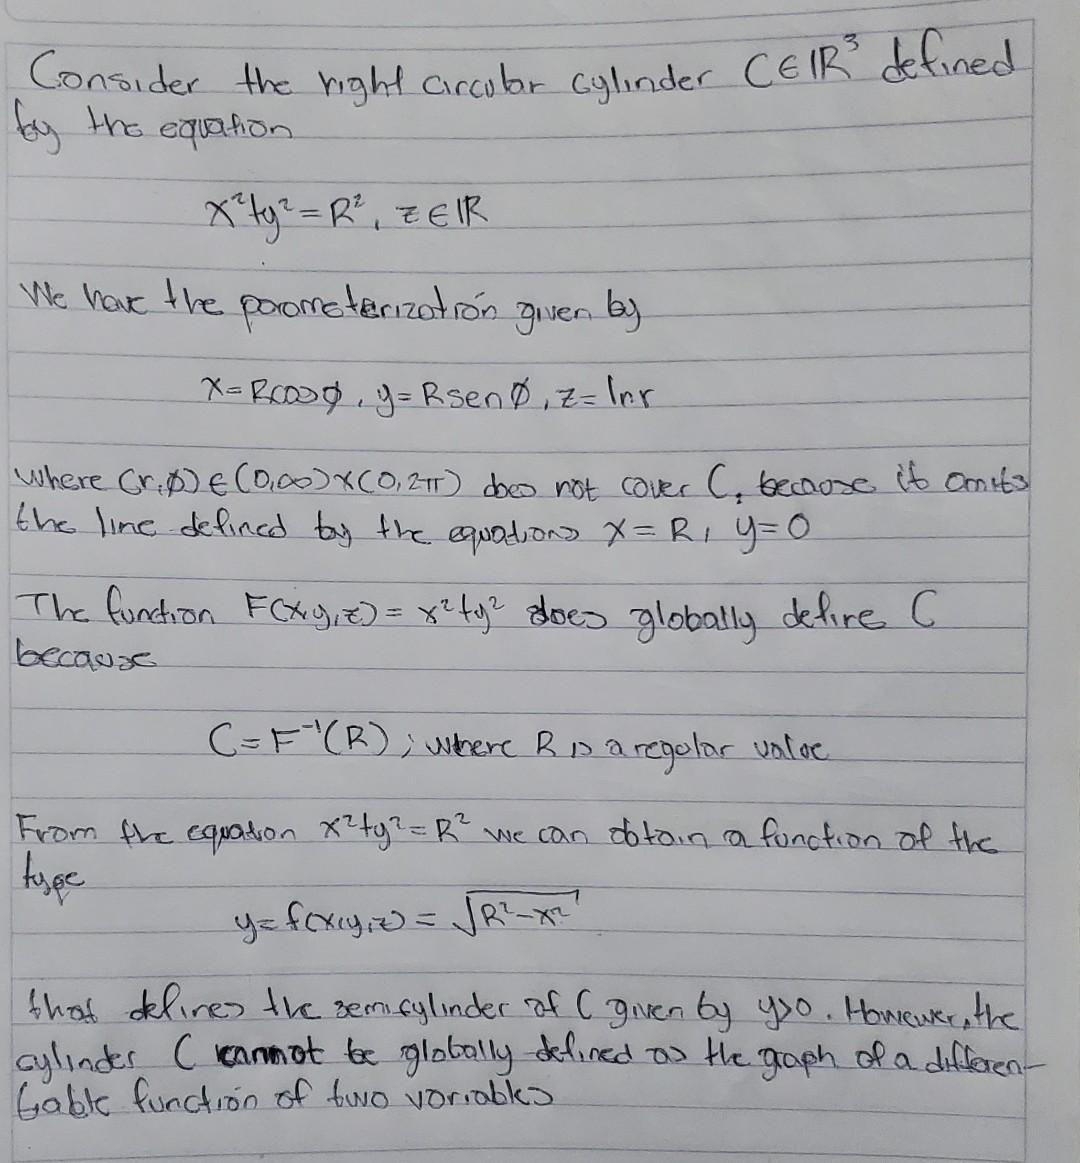 Consider the right circular cylinder C∈ℝ³ defined
by the equation
x²+y²=R², z∈ℝ
We have the parameterización given by
x=Rcosϕ, y=Rsenϕ, z=lnr
where (r,ϕ)∈(0,∞)×(0,2π) does not cover C, because it omits
the line defined by the equations x=R, y=0
The function F(x,y,z)=x²+y² does globally define C
because
C=F⁻¹(R); where R is a regular value
From the equation x²+y²=R² we can obtain a function of the
type
y=f(x,y,z)=√R²-x²
that defines the semicylinder of C given by y>0. However, the
cylinder C cannot be globally defined as the graph of a differen-
tiable function of two variables